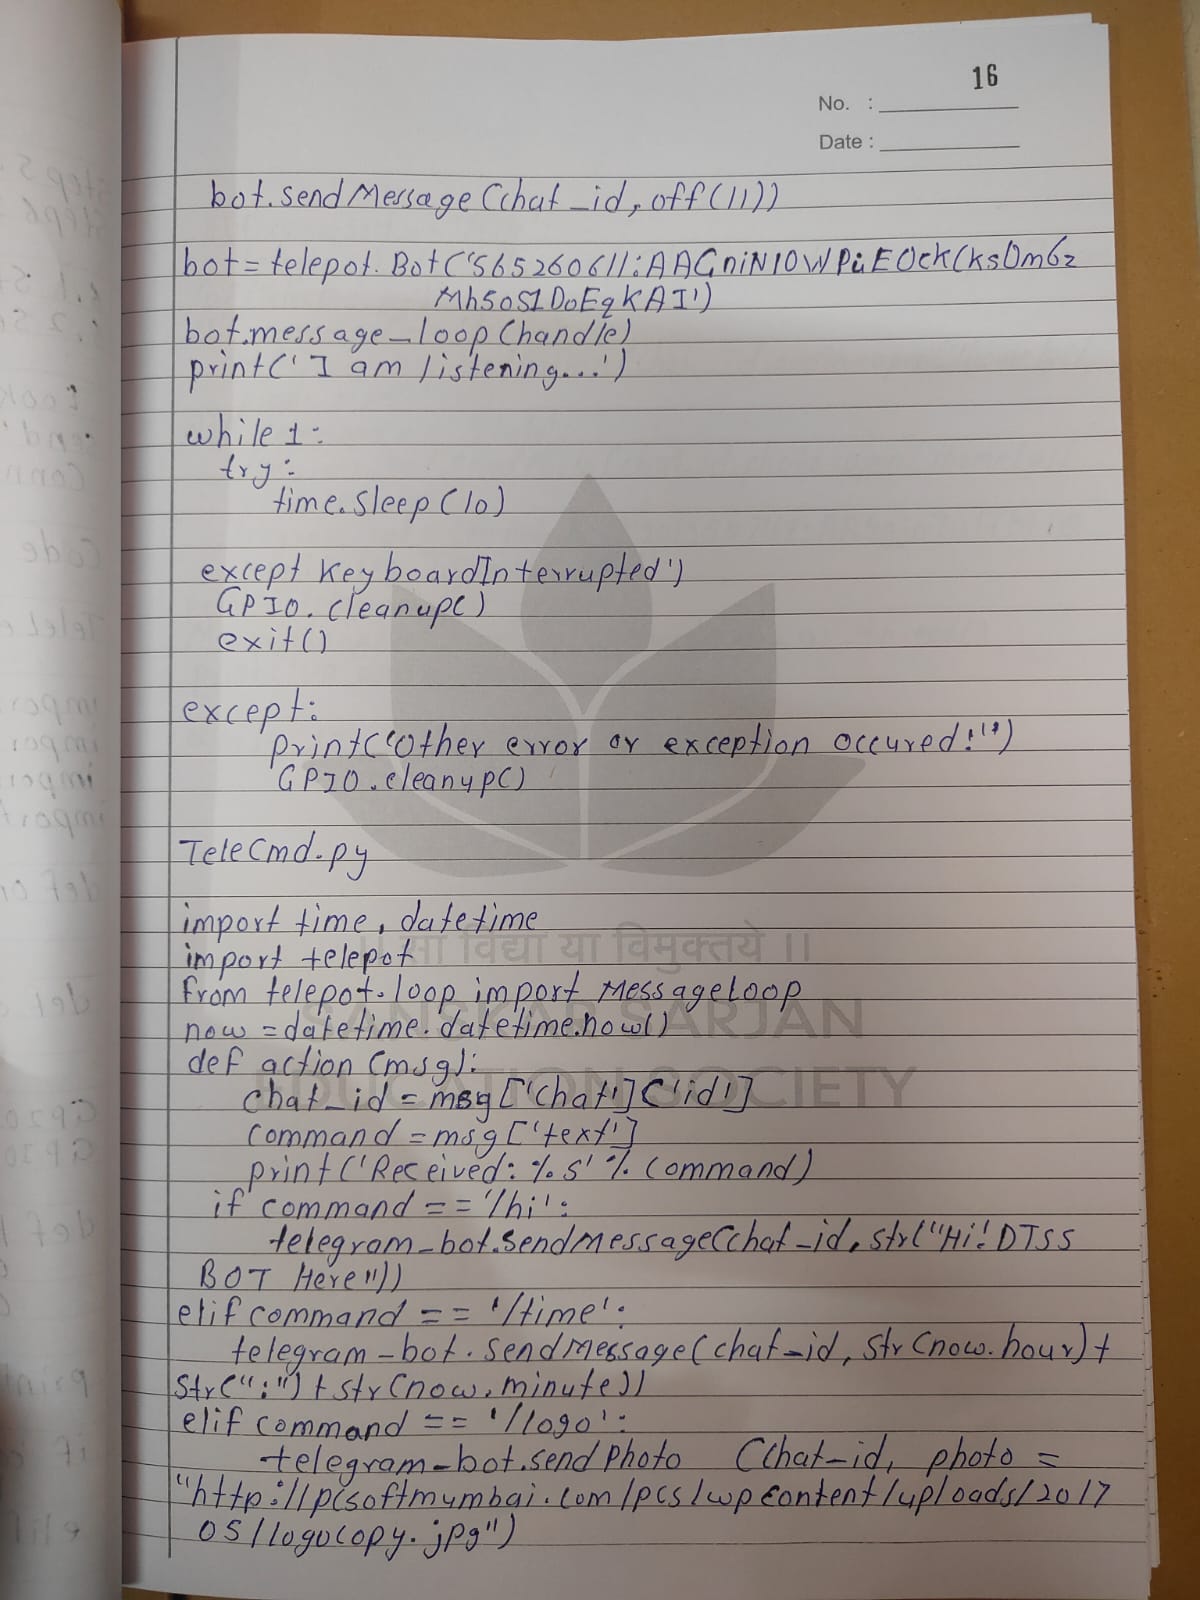 16
No. :
Date :
bot.sendMessage(chat_id, off(11))
bot = telepot.Bot('565260611:AAGniNIOWPiEOckCksOm6z
Mh5oS1DoEqKAI')
bot.message_loop(handle)
print('I am listening...')
while 1:
try:
time.sleep(10)
except KeyboardInterrupted')
GPIO.cleanup()
exit()
except:
print("Other error or exception occured!")
GPIO.cleanup()
TeleCmd.py
import time, datetime
import telepot
from telepot.loop import MessageLoop
now = datetime.datetime.now()
def action (msg):
chat_id = msg['chat']['id']
command = msg['text']
print('Received: %s' % command)
if command == '/hi':
telegram_bot.sendMessage(chat_id, str("Hi! DTSS
BOT Here"))
elif command == '/time':
telegram_bot.sendMessage(chat_id, str(now.hour)+
str(":")+str(now.minute))
elif command == '/logo':
telegram_bot.sendPhoto (chat_id, photo =
"http://pcsoftmumbai.com/pcs/wpcontent/uploads/2017
05/logocopy.jpg")
।। सा विद्या या विमुक्तये ।।
SANSKAR SARJAN
EDUCATION SOCIETY